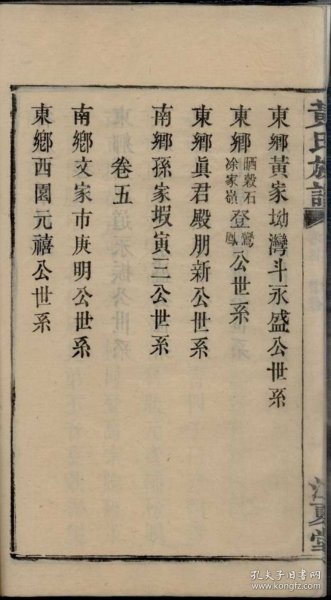 黃氏族譜
江夏堂
東鄉黃家坳灣斗永盛公世系
東鄉晒穀石涂家嶺登鸞鳳公世系
東鄉眞君殿朋新公世系
南鄉孫家塅寅三公世系
卷五
南鄉文家市庚明公世系
東鄉西園元禧公世系
孔夫子旧书网
www.kongfz.com